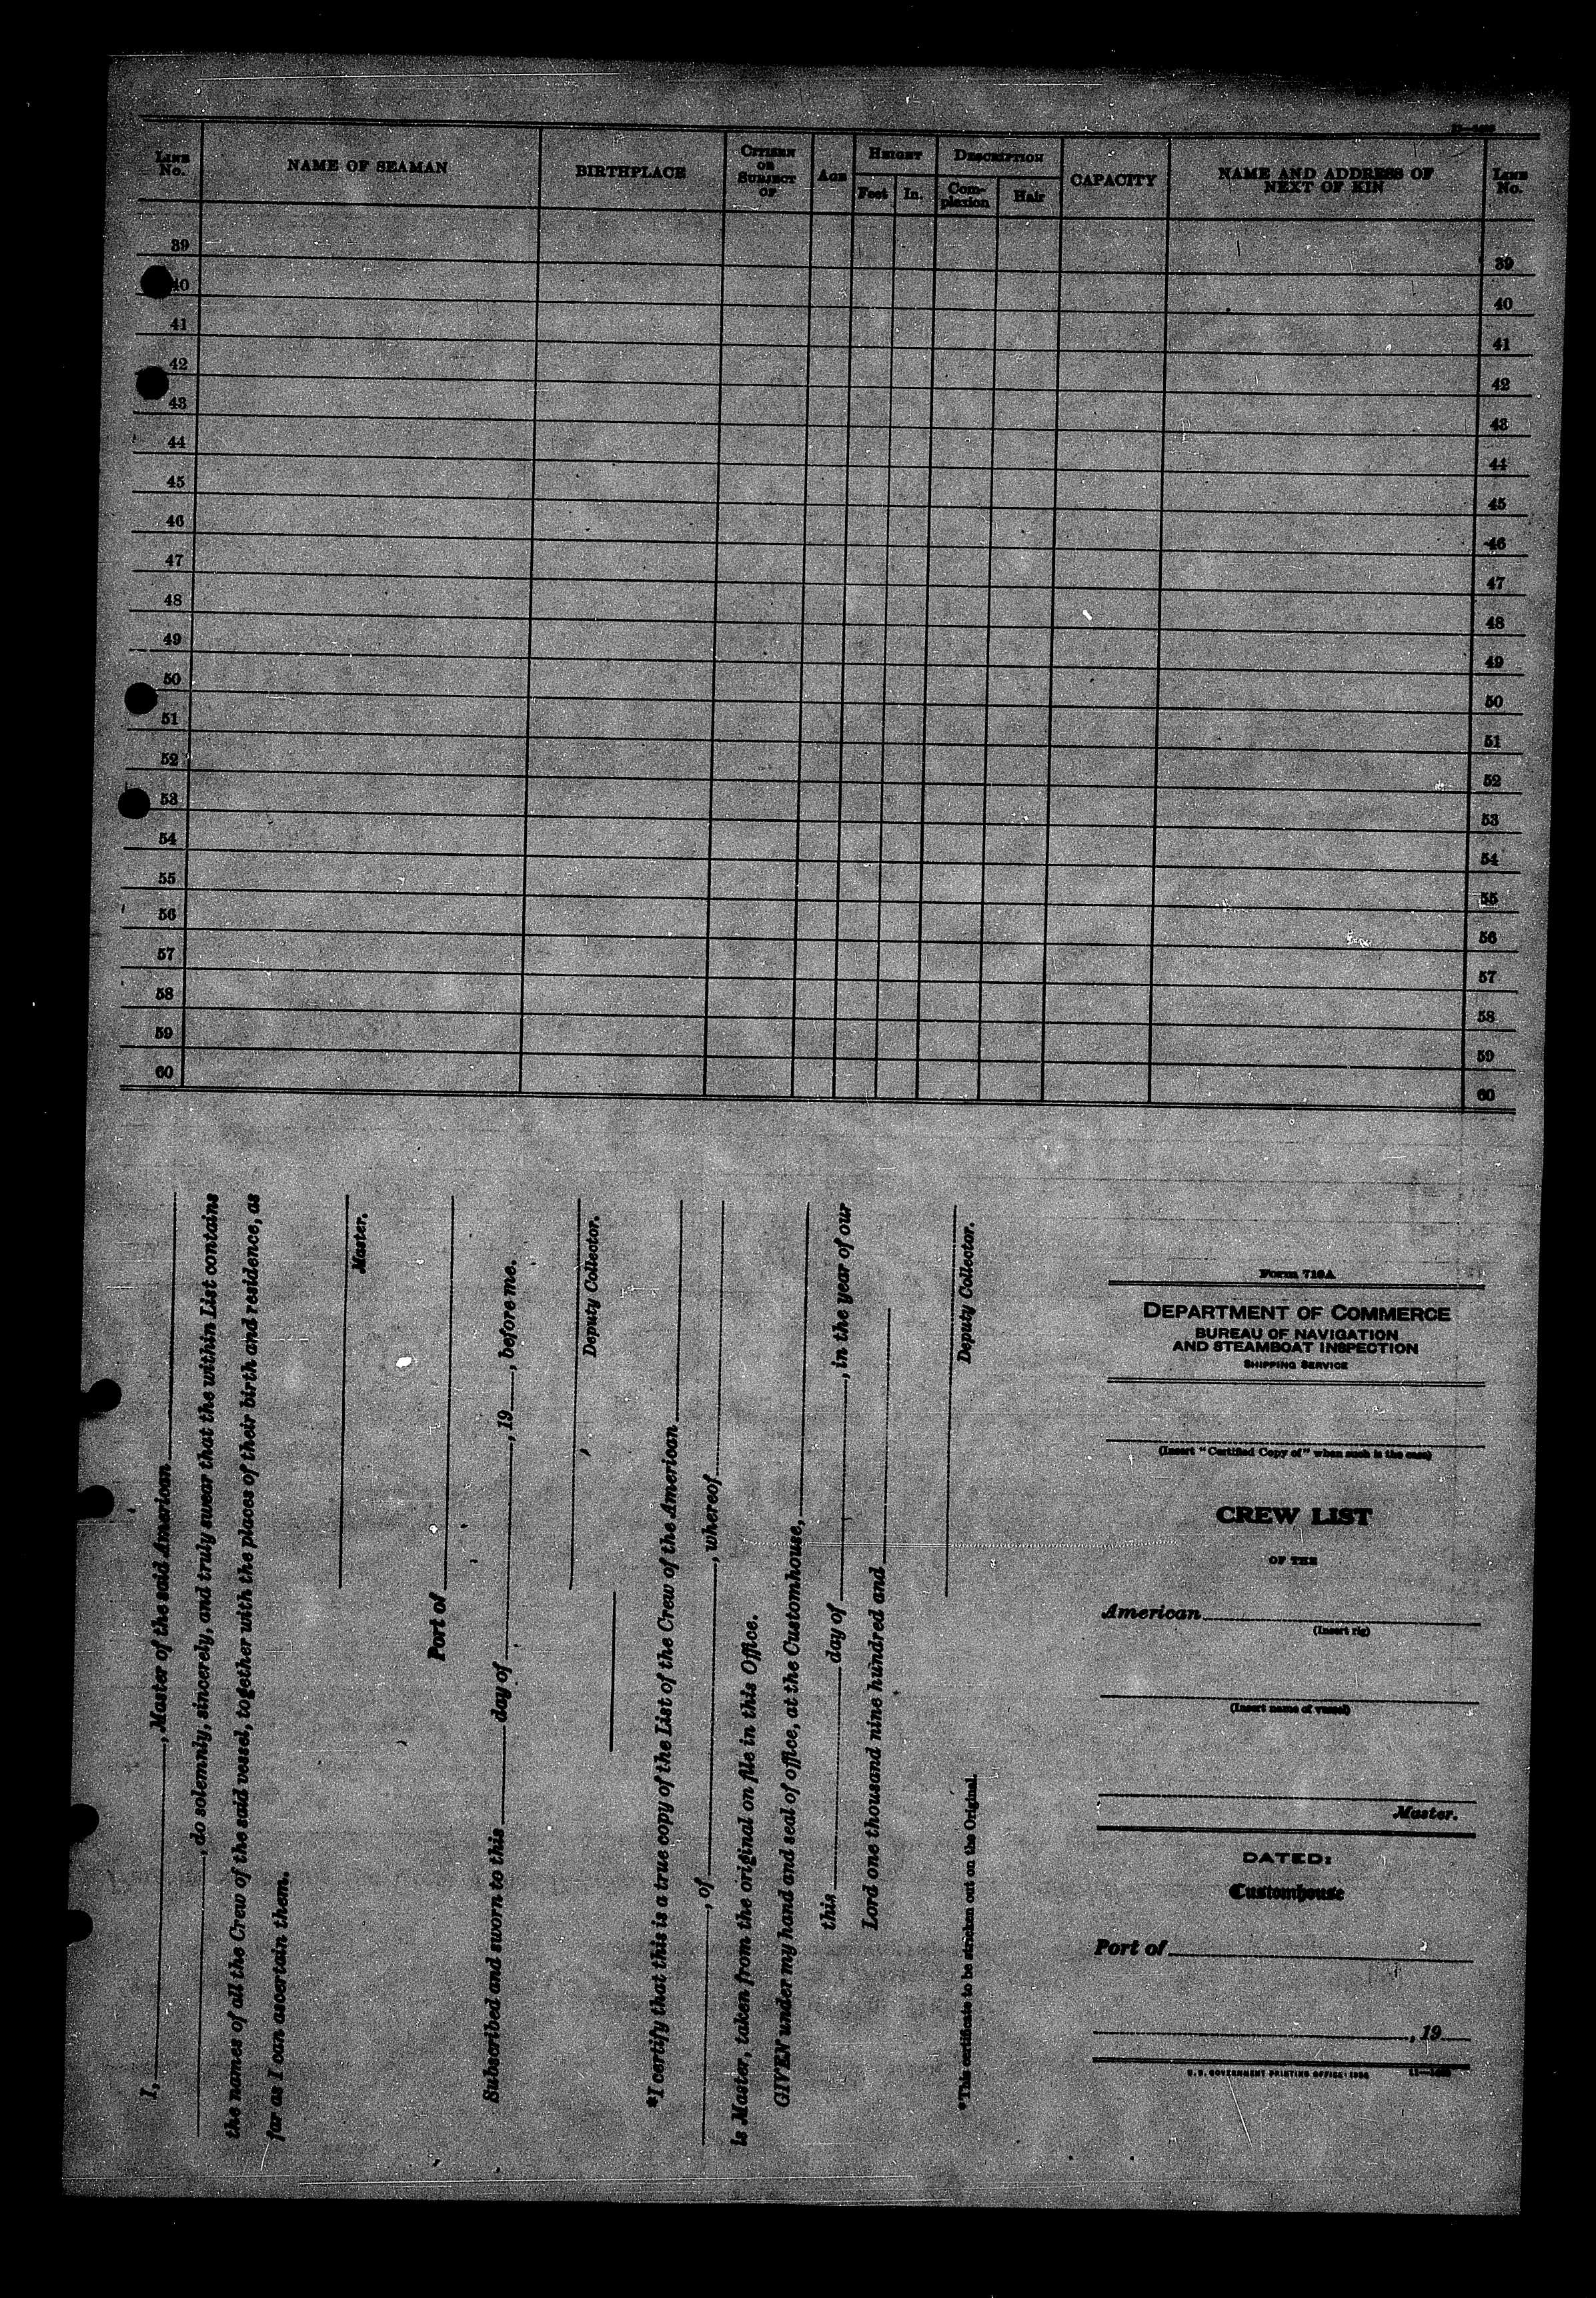 LINE No. NAME OF SEAMAN BIRTHPLACE CITIZEN OR SUBJECT OF AGE HEIGHT Feet In. DESCRIPTION Complexion Hair CAPACITY NAME AND ADDRESS OF NEXT OF KIN LINE No.
39 39
40 40
41 41
42 42
43 43
44 44
45 45
46 46
47 47
48 48
49 49
50 50
51 51
52 52
53 53
54 54
55 55
56 56
57 57
58 58
59 59
60 60
I, , Master of the said American
, do solemnly, sincerely, and truly swear that the within List contains
the names of all the Crew of the said vessel, together with the places of their birth and residence, as
far as I can ascertain them.
Master.
Port of
Subscribed and sworn to this day of , 19 , before me.
Deputy Collector.
*I certify that this is a true copy of the List of the Crew of the American
, of , whereof
is Master, taken from the original on file in this Office.
GIVEN under my hand and seal of office, at the Customhouse,
this day of , in the year of our
Lord one thousand nine hundred and
Deputy Collector.
*This certificate to be stricken out on the Original.
Form 710A
DEPARTMENT OF COMMERCE
BUREAU OF NAVIGATION
AND STEAMBOAT INSPECTION
SHIPPING SERVICE
(Insert "Certified Copy of" when such is the case)
CREW LIST
OF THE
American
(Insert rig)
(Insert name of vessel)
Master.
DATED:
Customhouse
Port of
, 19
U. S. GOVERNMENT PRINTING OFFICE: 1934